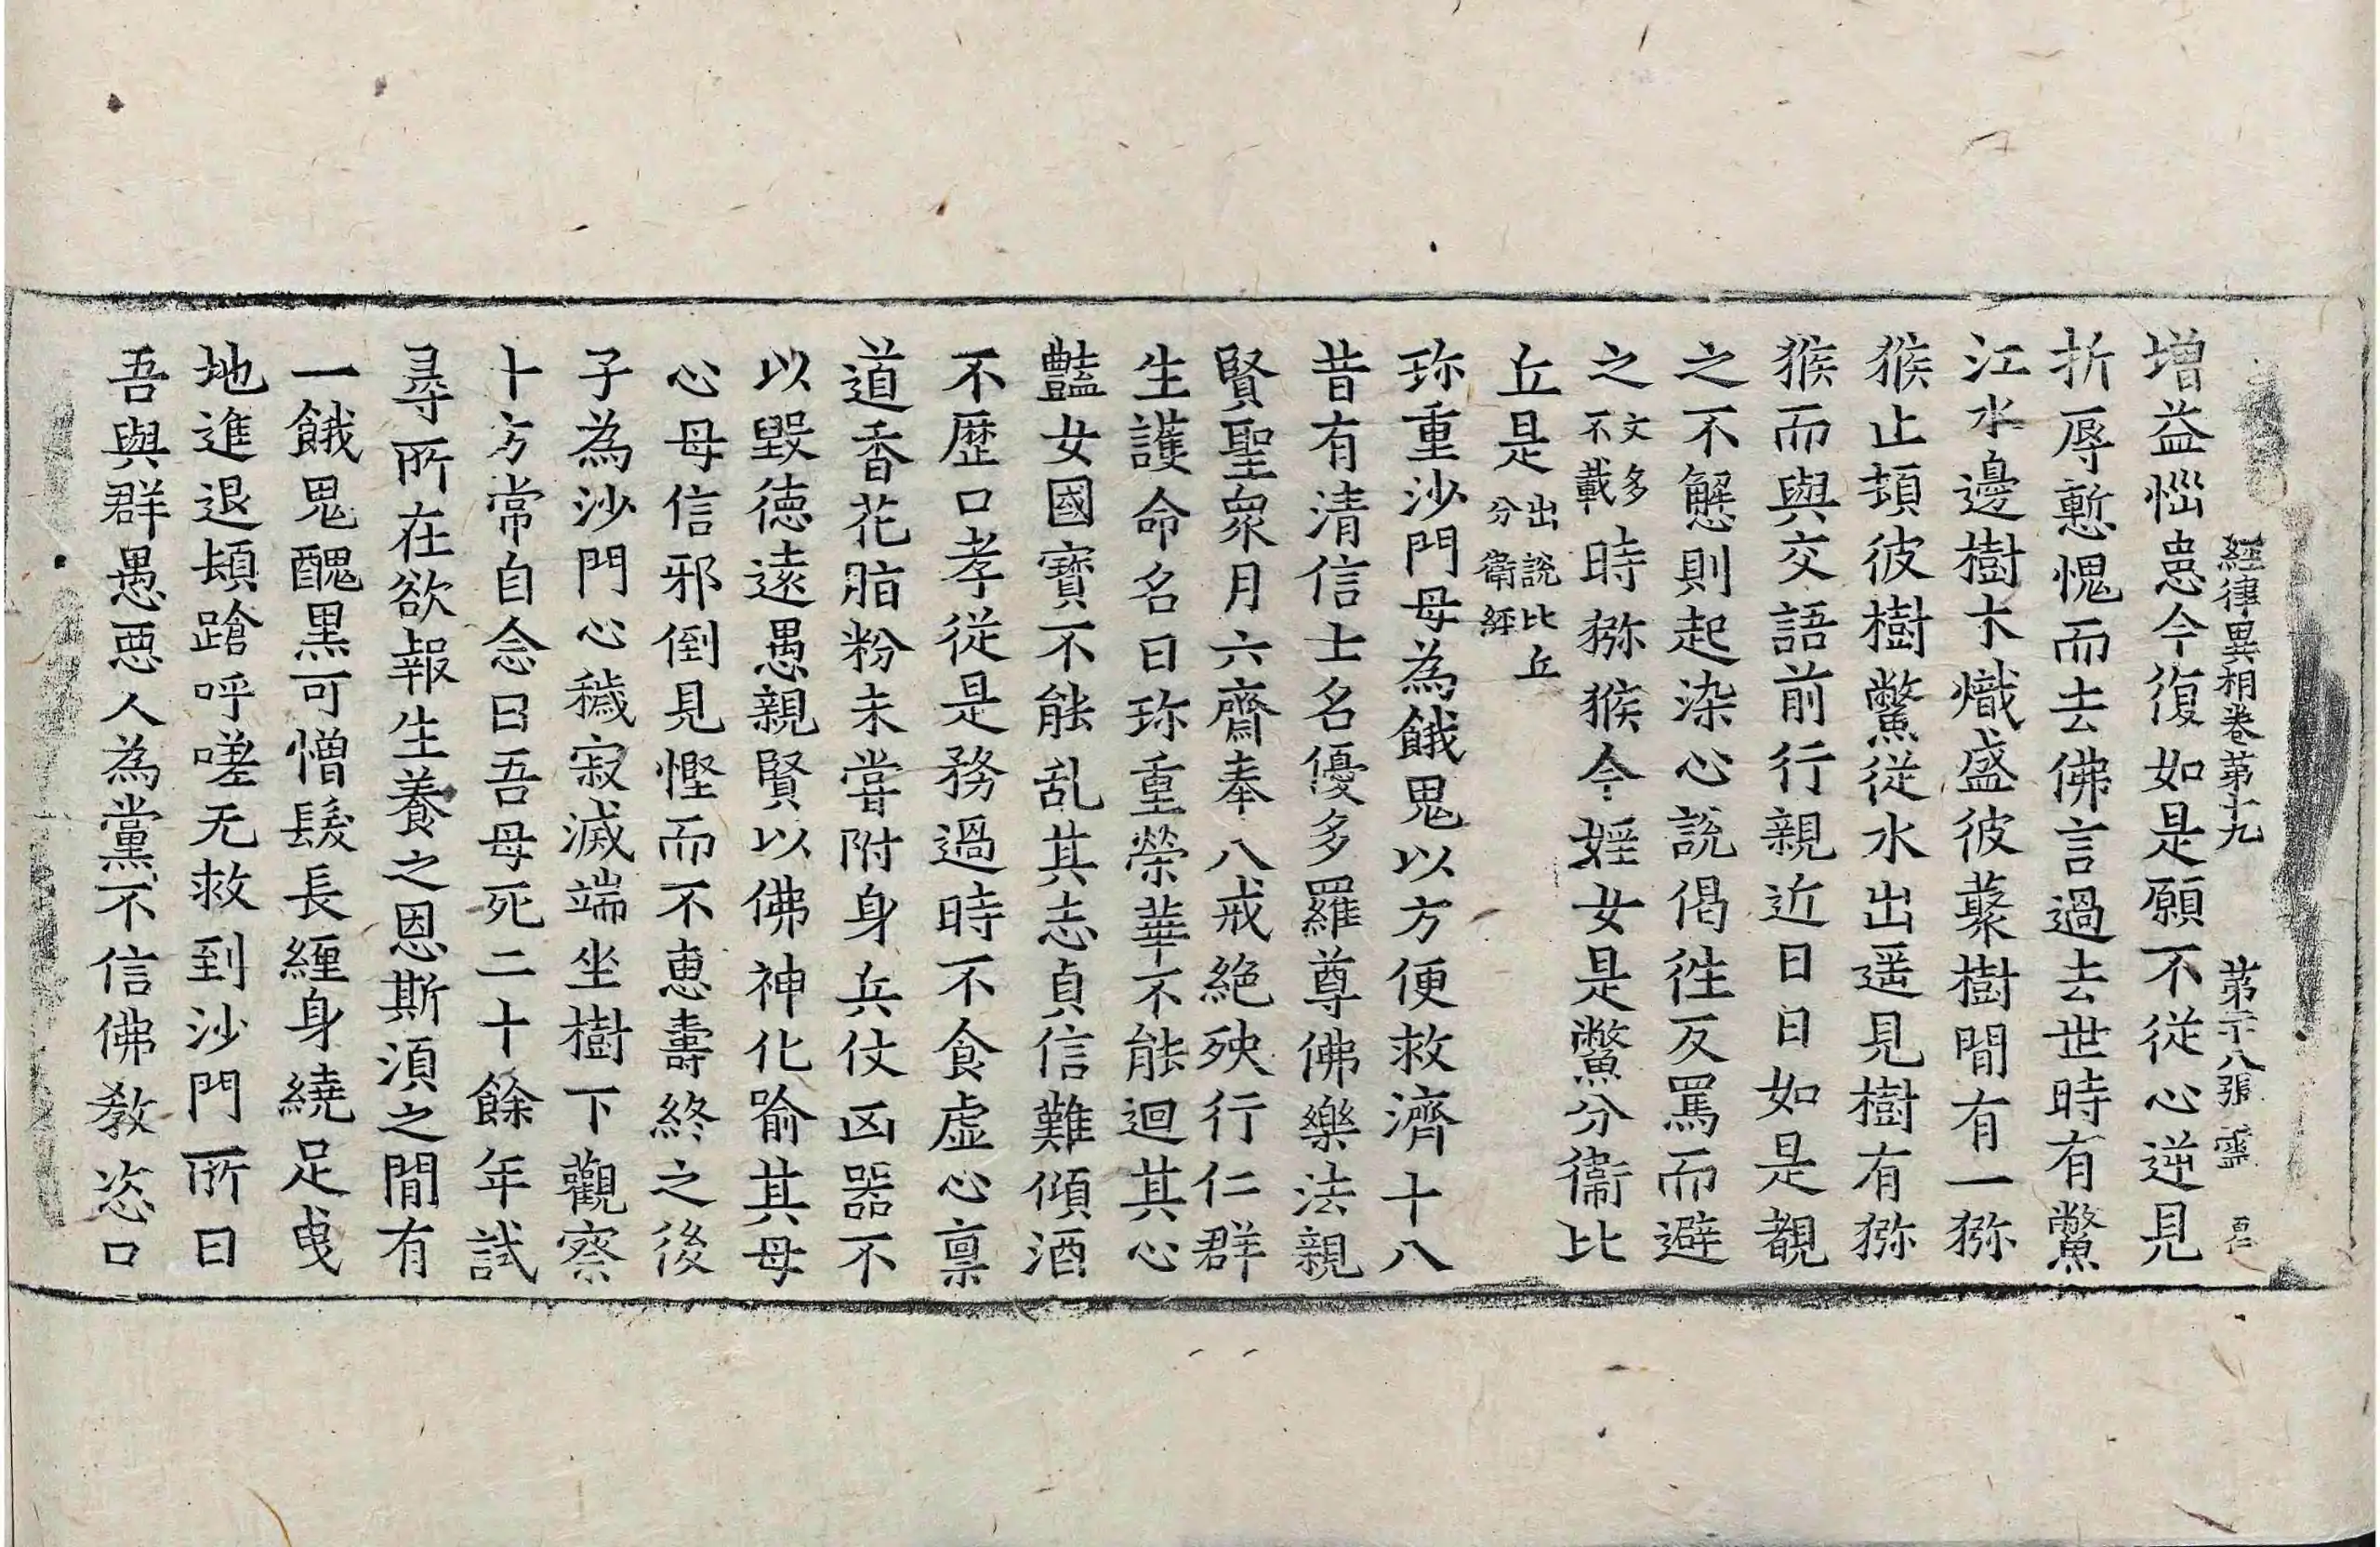 經律異相卷第十九　第二十八張　靈
增益惱患今復如是願不從心逆見
折辱慙愧而去佛言過去世時有鱉
江水邊樹木熾盛彼藂樹閒有一猕
猴止頓彼樹鱉從水出遥見樹有猕
猴而與交語前行親近日日如是覩
之不懈則起染心說偈徃反罵而避
之文多不載時猕猴今婬女是鱉分衞比
丘是出說比丘分衞經
珎重沙門母為餓鬼以方便救濟十八
昔有清信士名優多羅尊佛樂法親
賢聖衆月六齋奉八戒絶殃行仁群
生護命名曰珎重榮華不能迴其心
豔女國寶不能乱其志貞信難傾酒
不歷口孝從是務過時不食虛心禀
道香花脂粉未甞附身兵仗凶器不
以毀德遠愚親賢以佛神化喻其母
心母信邪倒見慳而不惠壽終之後
子為沙門心穢寂滅端坐樹下觀察
十方常自念曰吾母死二十餘年試
尋所在欲報生養之恩斯須之閒有
一餓鬼醜黑可憎髮長纏身繞足曳
地進退頓蹌呼嗟无救到沙門所曰
吾與群愚惡人為黨不信佛教恣口